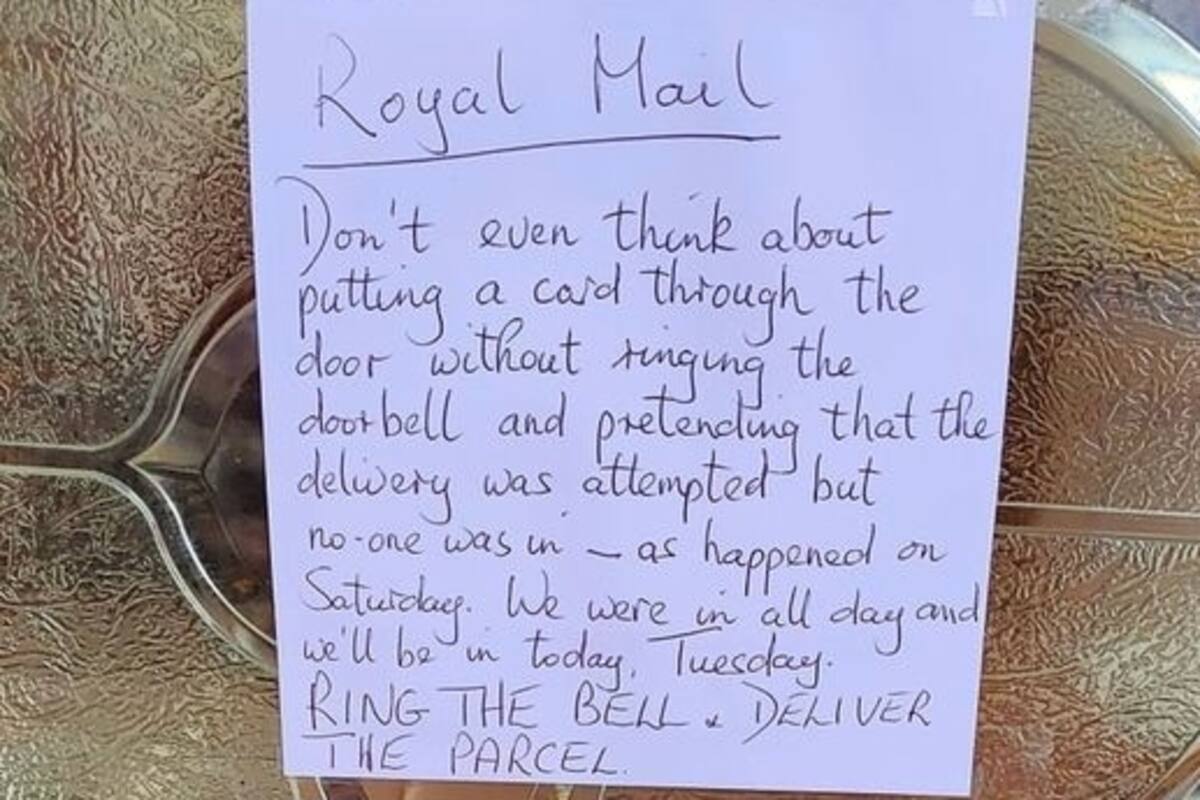 Royal Mail
Don't even think about
putting a card through the
door without ringing the
doorbell and pretending that the
delivery was attempted but
no-one was in – as happened on
Saturday. We were in all day and
we'll be in today, Tuesday.
RING THE BELL & DELIVER
THE PARCEL.